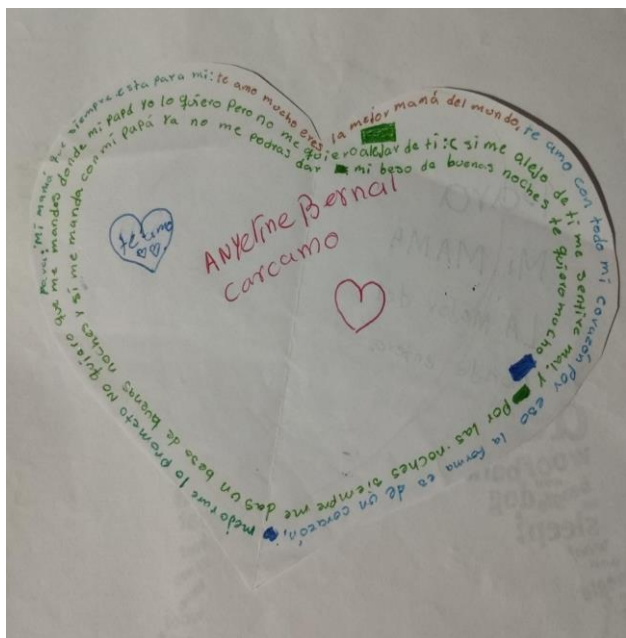 Para: Mi mamá que siempre esta para mi: te amo mucho eres la mejor mamá del mundo, te amo con todo mi corazón por eso la forma es de un corazón,
mejorare lo prometo No quiero que me mandes donde mi papá yo lo quiero pero no me quiero alejar de ti :c si me alejo de ti me sentire mal, y por las noches siempre me das un beso de buenas noches
y si me manda con mi papá ya no me podras dar mi beso de buenas noches te quiero mocho
ANYeline Bernal
carcamo